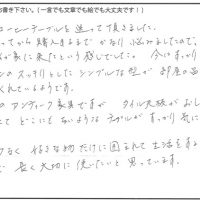 お書き下さい。(一言でも文章でも絵でも大丈夫です!)
コーヒーテーブルを送って頂きました。
ってから購入するまで かなり悩みましたので、
が家に来たという感じでした。 今はすっかり
スッキリとしたシンプルな型が 部屋の
くれているようです。
のアンティーク家具ですが タイル天板がおし
て どこにもないようなテーブルがすっかり気に
なく 好きな物だけに囲まれて生活をする
で 長く大切に使いたいと思っています。